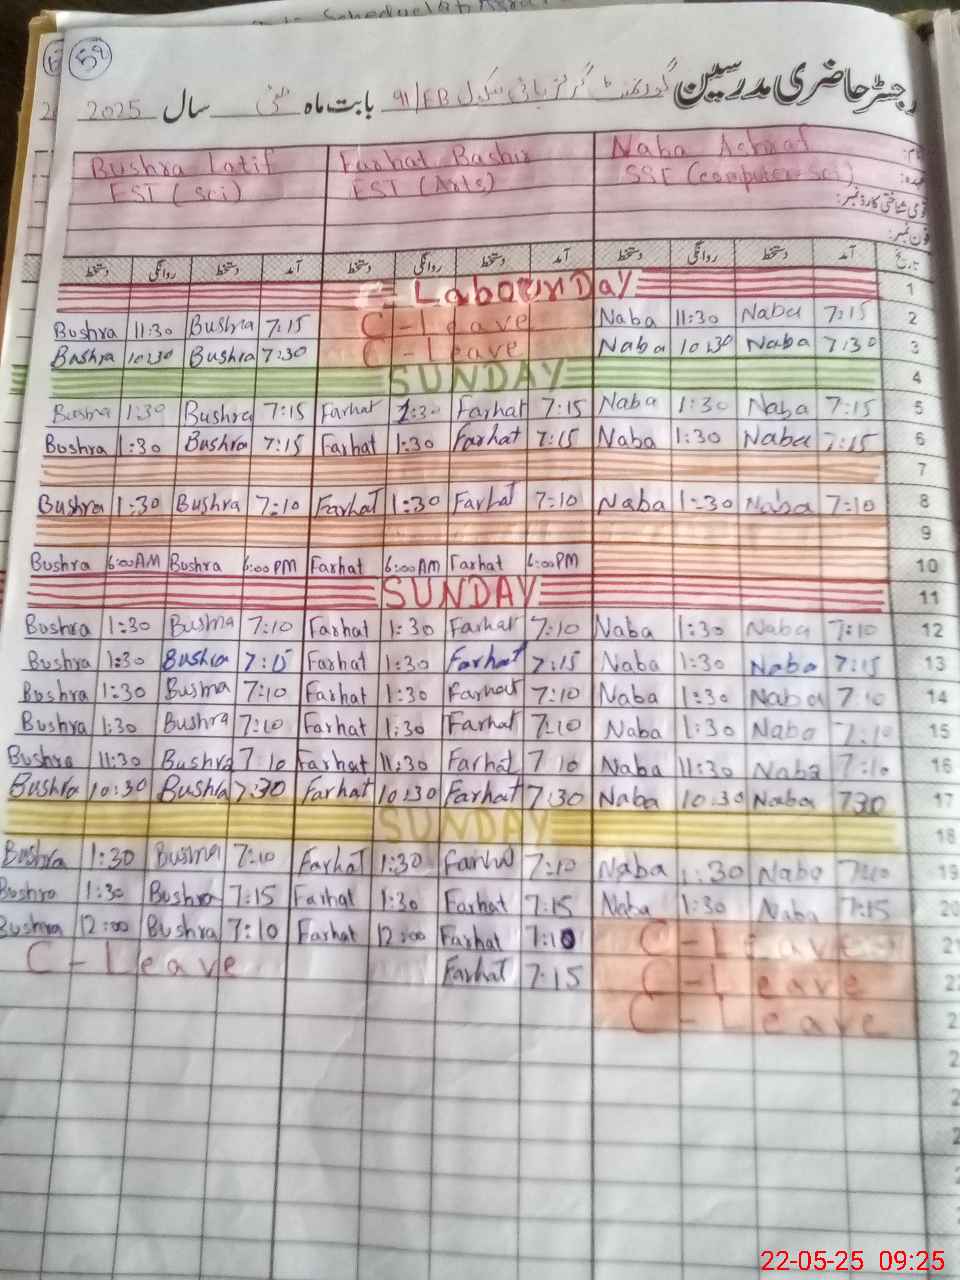 59
رجسٹر حاضری مدرسین گورنمنٹ گرلز ہائی سکول 91/EB بابت ماہ مئی سال 2025
Bushra Latif Farhat Bashir Naba Ashraf
EST (Sci) EST (Arts) SSE (computer Sci)
قومی شناختی کارڈ نمبر:
فون نمبر:
دستخط روانگی دستخط آمد دستخط روانگی دستخط آمد دستخط روانگی دستخط آمد تاریخ
C-Labour Day 1
Bushra 11:30 Bushra 7:15 C-Leave Naba 11:30 Naba 7:15 2
Bushra 10:30 Bushra 7:30 C-Leave Naba 10:30 Naba 7:30 3
SUNDAY 4
Bushra 1:30 Bushra 7:15 Farhat 1:30 Farhat 7:15 Naba 1:30 Naba 7:15 5
Bushra 1:30 Bushra 7:15 Farhat 1:30 Farhat 7:15 Naba 1:30 Naba 7:15 6
7
Bushra 1:30 Bushra 7:10 Farhat 1:30 Farhat 7:10 Naba 1:30 Naba 7:10 8
9
Bushra 6:00AM Bushra 6:00PM Farhat 6:00AM Farhat 6:00PM 10
SUNDAY 11
Bushra 1:30 Bushra 7:10 Farhat 1:30 Farhat 7:10 Naba 1:30 Naba 7:10 12
Bushra 1:30 Bushra 7:15 Farhat 1:30 Farhat 7:15 Naba 1:30 Naba 7:15 13
Bushra 1:30 Bushra 7:10 Farhat 1:30 Farhat 7:10 Naba 1:30 Naba 7:10 14
Bushra 1:30 Bushra 7:10 Farhat 1:30 Farhat 7:10 Naba 1:30 Naba 7:10 15
Bushra 11:30 Bushra 7:10 Farhat 11:30 Farhat 7:10 Naba 11:30 Naba 7:10 16
Bushra 10:30 Bushra 7:30 Farhat 10:30 Farhat 7:30 Naba 10:30 Naba 730 17
SUNDAY 18
Bushra 1:30 Bushra 7:10 Farhat 1:30 Farhat 7:10 Naba 1:30 Naba 7:10 19
Bushra 1:30 Bushra 7:15 Farhat 1:30 Farhat 7:15 Naba 1:30 Naba 7:15 20
Bushra 12:00 Bushra 7:10 Farhat 12:00 Farhat 7:10 C-Leave
C-Leave Farhat 7:15 C-Leave
C-Leave
22-05-25 09:25